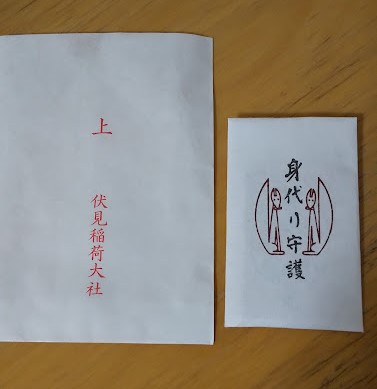 上
伏見稲荷大社
身代り守護